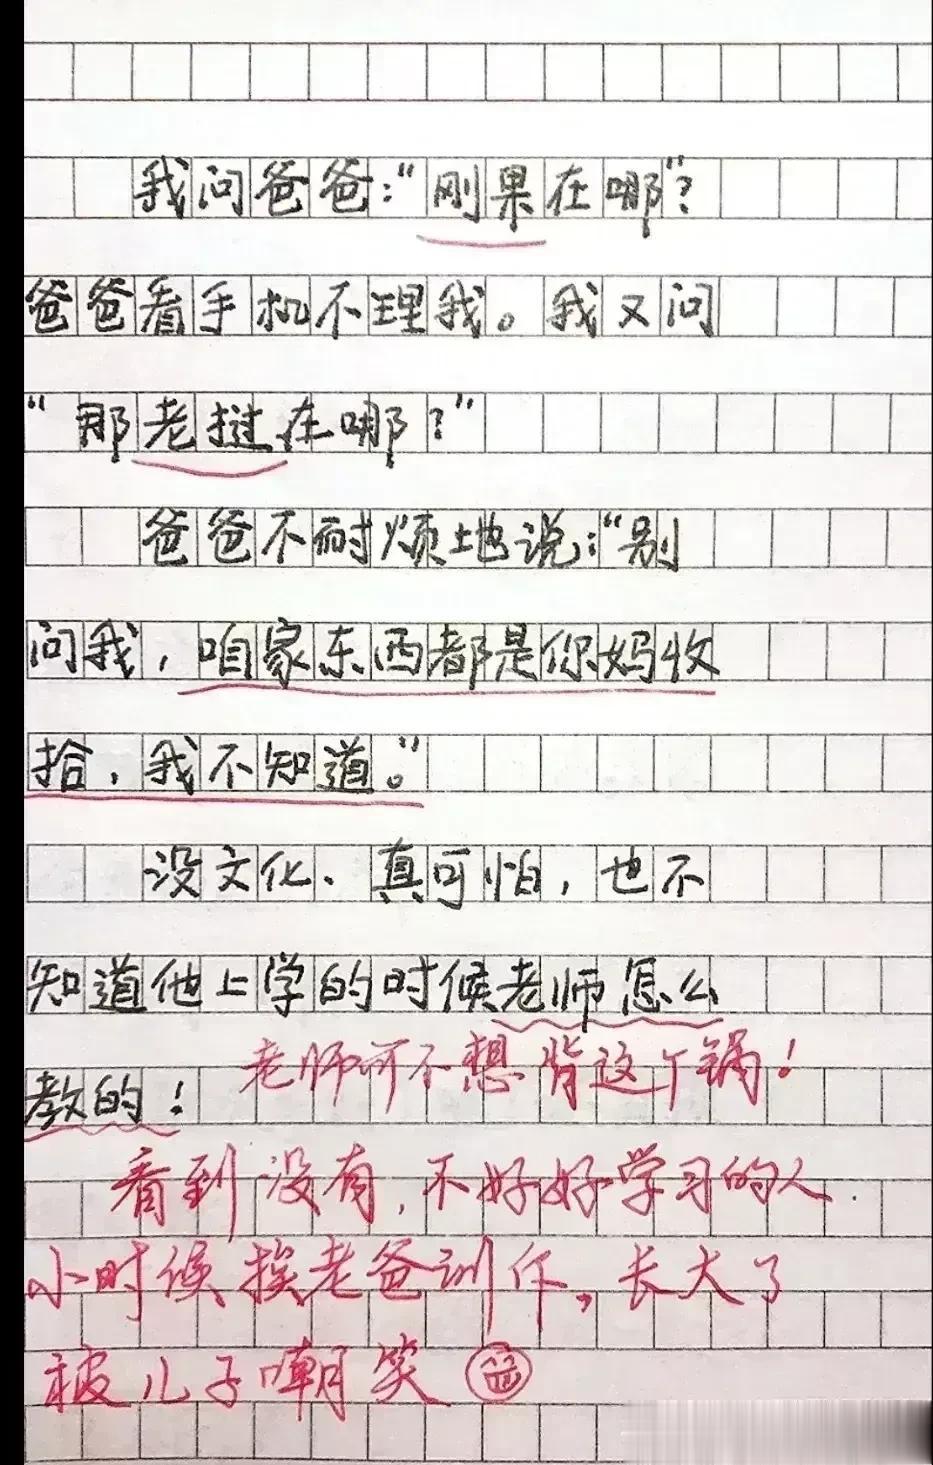 我问爸爸:“刚果在哪”?
爸爸看手机不理我。我又问
“那老挝在哪?”
爸爸不耐烦地说:“别
问我,咱家东西都是你妈收
拾,我不知道。”
没文化、真可怕,也不
知道他上学的时候老师怎么
教的!
老师可不想背这个锅!
看到没有,不好好学习的人
小时候挨老爸训斥,长大了
被儿子嘲笑